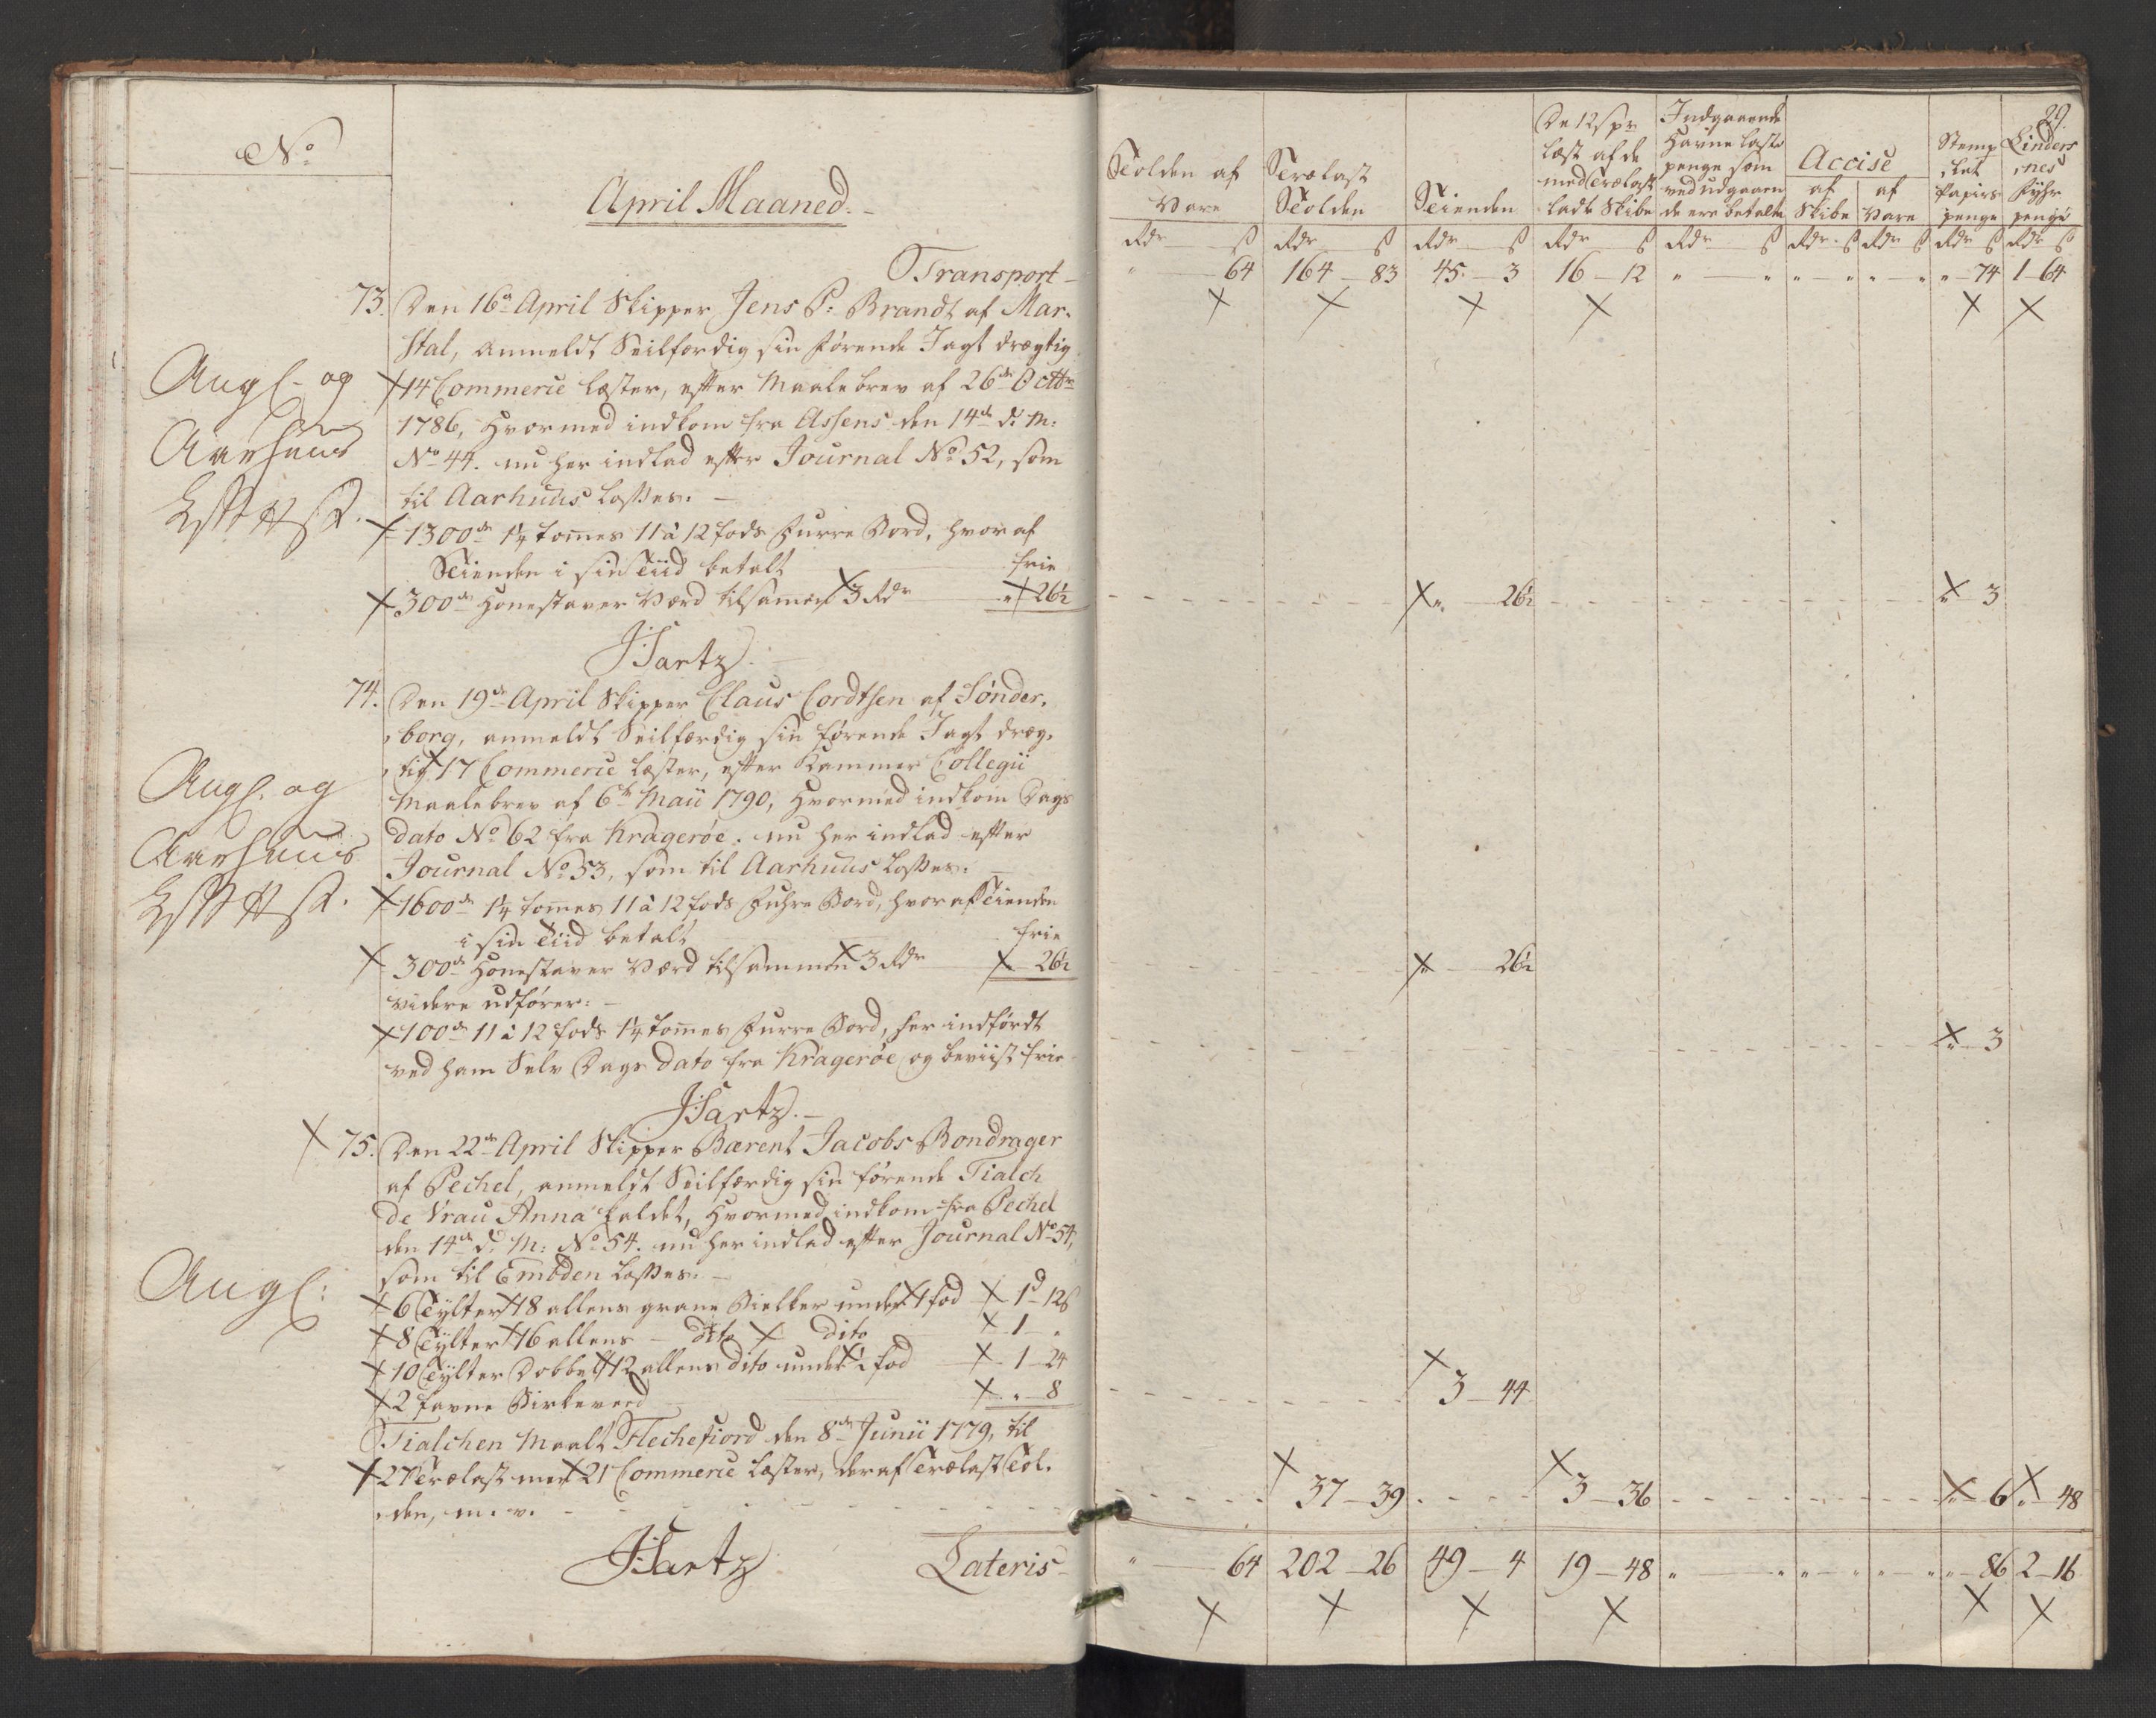 No
April Maaned.
Transport
73. Den 16de April Skipper Jens P: Brandt af Mar-
stal, anmeldt Seilfærdig sin førende Jagt drægtig
14 Commerce læster, efter Maalebrev af 26de Octbr
1786, hvormed indkom fra Assens den 14de d: M:
No 44. nu her indlad efter Journal No 52, som
til Aarhuus losses.
1300de 1¼ tommes 11 à 12 fods Furre Bord, hvoraf
Tienden i sin Tiid betalt frie
300de Honestaver Værd tilsammen 3 Rdr " 26½
JHartz.
74. Den 19de April Skipper Claus Cordtsen af Sønder-
borg, anmeldt Seilfærdig sin førende Jagt dræg-
tig 17 Commerce læster, efter Kammer Collegii
Maalebrev af 6te Maii 1790, hvormed indkom Dags
dato No 62 fra Kragerøe. nu her indlad efter
Journal No 53, som til Aarhuus losses.
1600de 1¼ tommes 11 à 12 fods Fuhre Bord, hvoraf Tienden
i sin Tiid betalt frie
300de Honestaver Værd tilsammen 3 Rdr 26½
videre udfører:
100de 11 à 12 fods 1¼ tommes Furre Bord, her indførdt
ved ham Selv Dags dato fra Kragerøe og beviist frie
JHartz.
75. Den 22de April Skipper Barent Jacobs Bondrager
af Pechel, anmeldt Seilfærdig sin førende Tialch
de Vrau Anna kaldet, hvormed indkom fra Pechel
den 14de d: M: No 54. nu her indlad efter Journal No 54,
som til Embden losses.
6 Tylter 18 allens grane Bielker under 1 fod 1d 12ß
8 Tylter 16 allens dito dito 1 "
10 Tylter Dobbelt 12 allens dito under 1 fod 1 24
2 favne Birkeved " 8
Tialchen Maalt Flechefiord den 8de Junii 1779, til
27 Trælast med 21 Commerce læster, deraf Trælast Tol-
den, m. v.
JHartz
Lateris
Angl. og
Aarhuus
Angl. og
Aarhuus
Angl:
29.
Tolden af Vare
Trælast Tolden
Tienden
De 12 spr læst af de med Trælast ladte Skibe
Indgaaende Havne laste penge som ved udgaaende ere betalte
Accise
af Skibe
af Vare
Stemplet Papiirs penge
Lindersnes Fyhr penge
Rdr ß Rdr ß Rdr ß Rdr ß Rdr ß Rdr ß Rdr ß Rdr ß Rdr ß
" 64 164 83 45 3 16 12 " " " " " " " 74 1 64
" 26½ " 3
" 26½
" 3
3 44
37 39 3 36 " 6 " 48
" 64 202 26 49 4 19 48 " " " " " " " 86 2 16